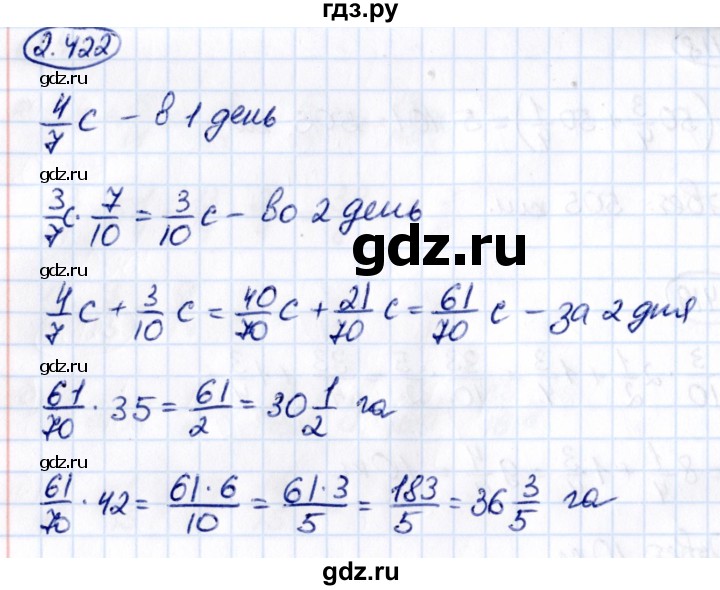 гдз.ру
2.422
gdz.ru
4/7 c - в 1 день
gdz.ru
3/7 c · 7/10 = 3/10 c - во 2 день
gdz.ru
gdz.ru
4/7 c + 3/10 c = 40/70 c + 21/70 c = 61/70 c - за 2 дня
gdz.ru
61/70 · 35 = 61/2 = 30 1/2 га
gdz.ru
61/70 · 42 = 61·6/10 = 61·3/5 = 183/5 = 36 3/5 га
gdz.ru